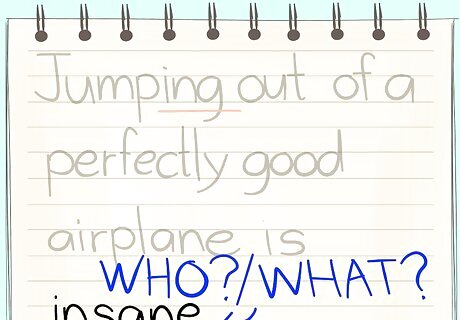 Jumping out of a
perfectly good
airplane is
WHO?/WHAT?
insane